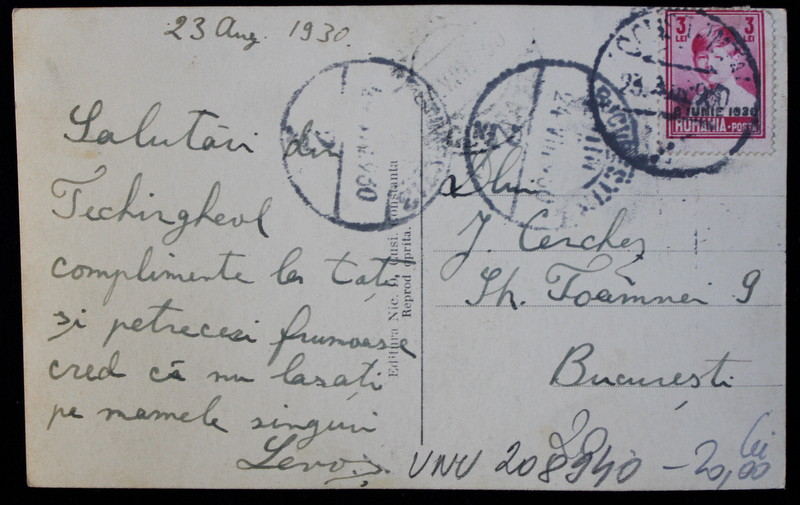 23 Aug. 1930.
Salutări din
Techirgheol
complimente la toți
și petreceri frumoase
cred că nu lasați
pe mamele singuri
Editura Nic. D. Constanta
Reprod oprita.
3 LEI 3 LEI
8 IUNIE 1930
ROMANIA-POSTA
Dlui
J. Cerchez
Sh. Toamnei 9
București
VNU 208940 - 20,00 lei